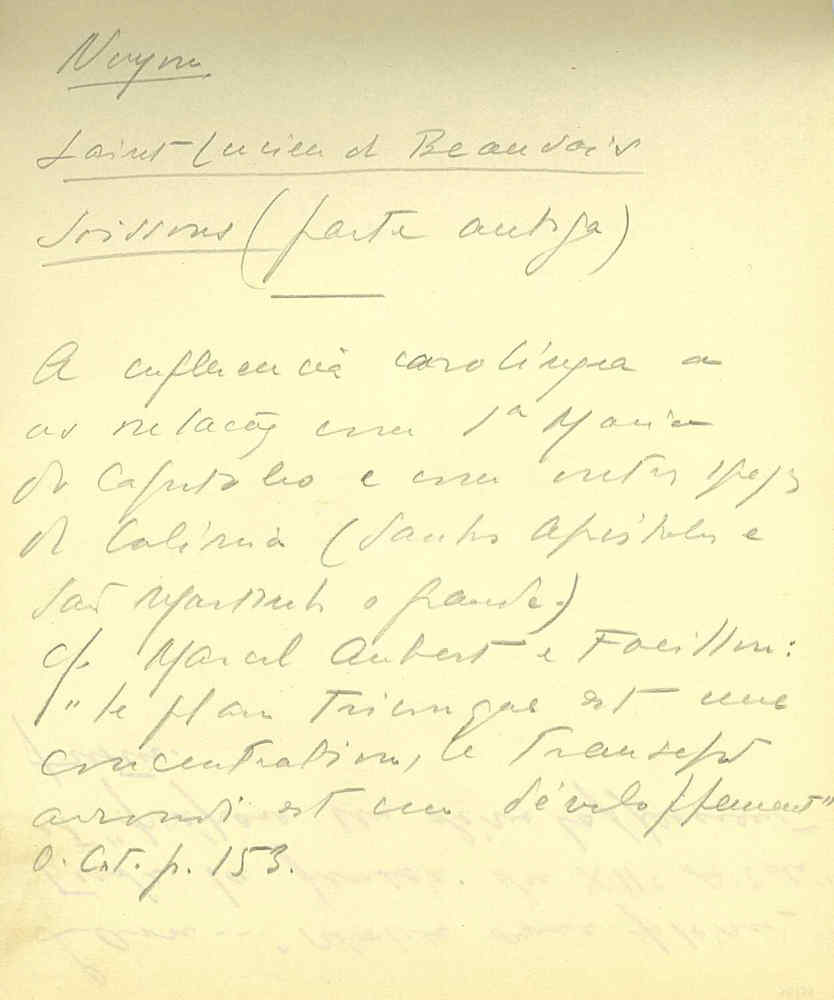 Noyon
Saint-Lucien de Beauvais
Soissons (parte antiga)
A influencia carolíngea e
as relações com Sta Maria
do Capitolio e com outras igrejas
de Colónia (Santos Apóstolos e
São Martinho o grande.)
cf. Marcel Aubert e Focillon:
"le plan triconque est une
concentration, le transept
arrondi est un développement"
O. Cit. p. 153.